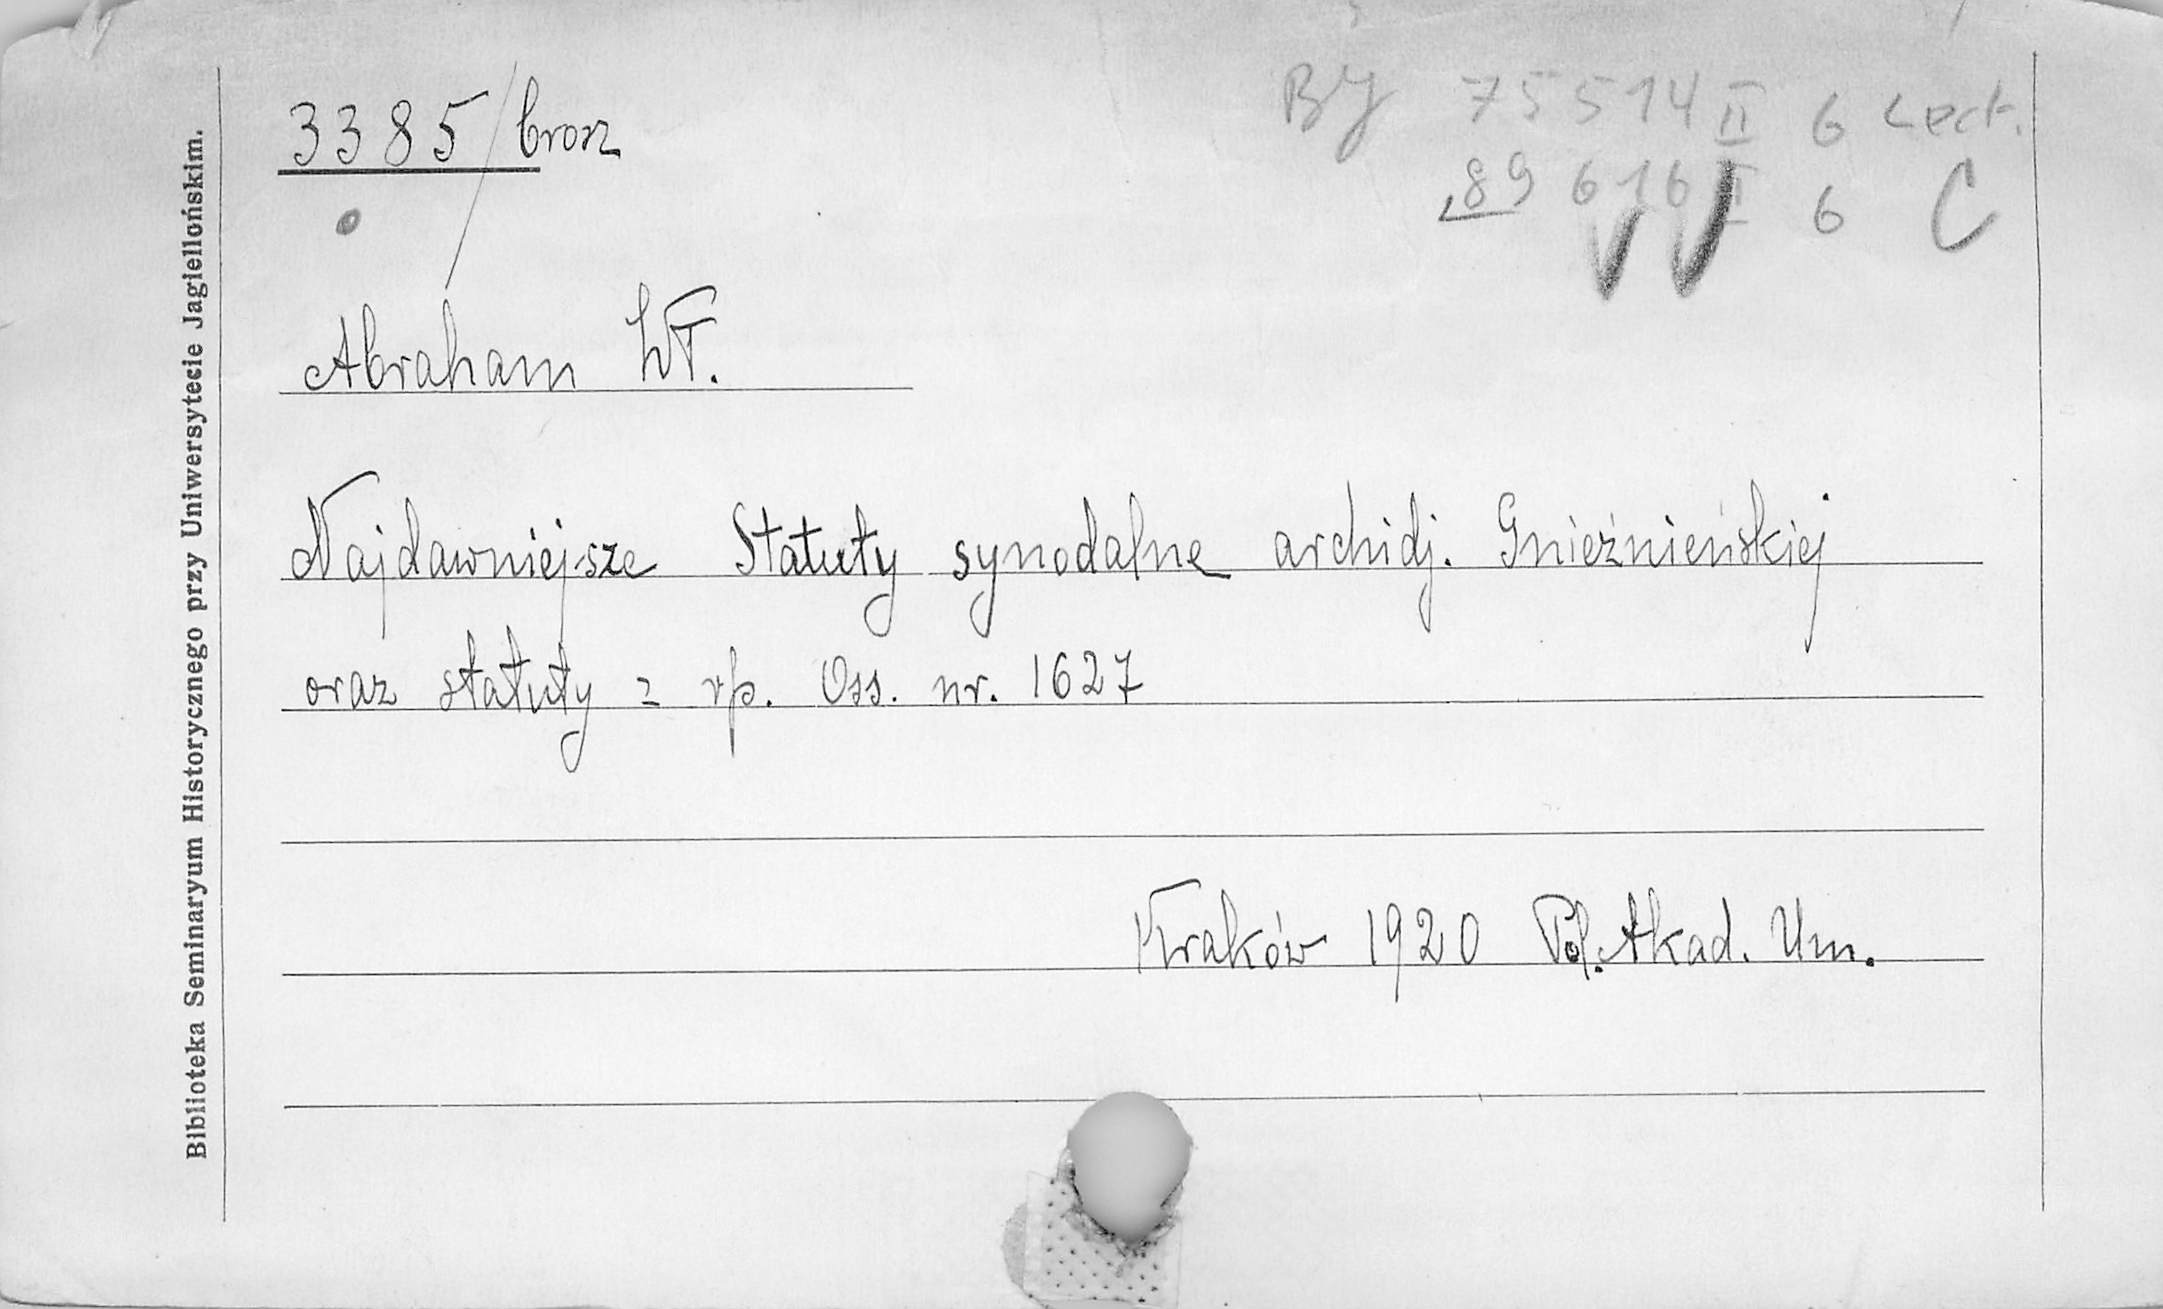 3385/brosz
BJ 75514 II 6 Lect.
89616 II 6 C
Abraham Wł.
Najdawniejsze Statuty synodalne archidj. Gnieźnieńskiej
oraz statuty z rp. Oss. nr. 1627
Kraków 1920 Pol. Akad. Um.
Biblioteka Seminaryum Historycznego przy Uniwersytecie Jagiellońskim.